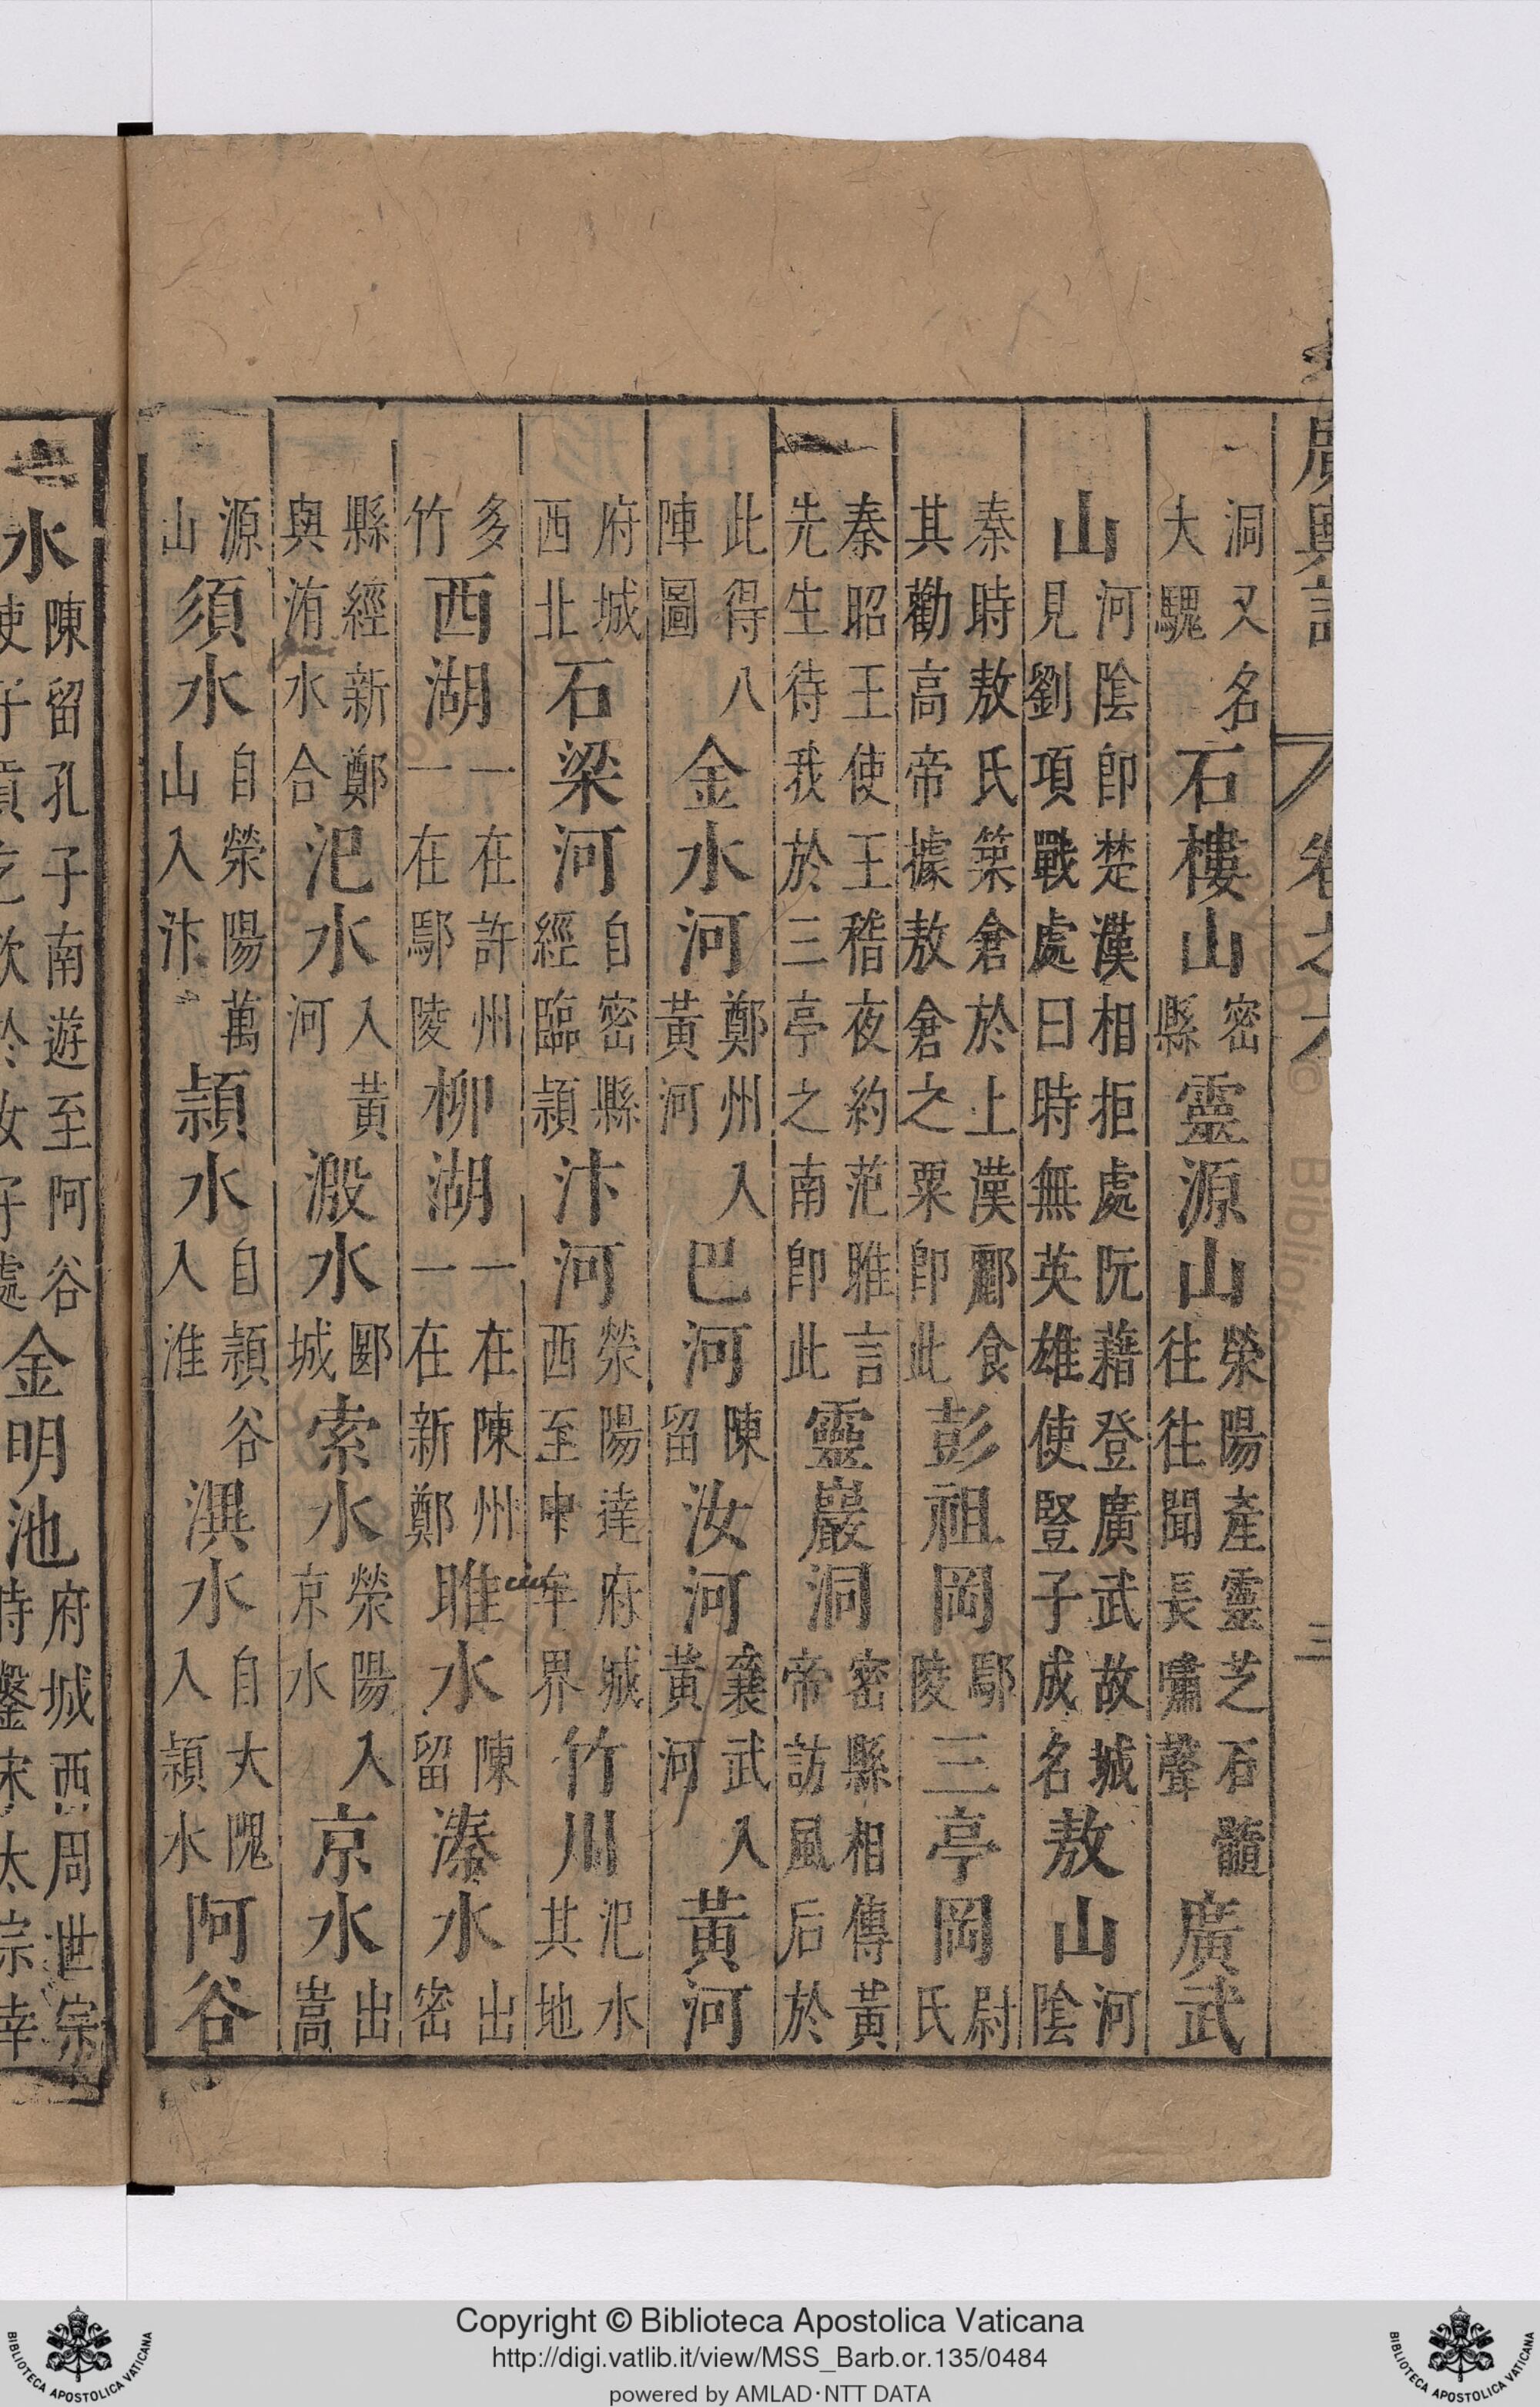 廣輿記 卷之六 三
洞又名大騩石樓山密縣靈源山滎陽產靈芝石髓往往聞長嘯聲廣武
山河陰即楚漢相拒處阮藉登廣武故城見劉項戰處曰時無英雄使豎子成名敖山河陰
秦時敖氏築倉於上漢酈食其勸高帝據敖倉之粟即此彭祖岡鄢陵三亭岡尉氏
秦昭王使王稽夜約范雎言先生待我於三亭之南即此靈巖洞密縣相傳黃帝訪風后於
此得八陣圖金水河鄭州入黃河巴河陳留汝河襄武入黃河黃河
府城西北石梁河自密縣經臨潁汴河滎陽達府城西至中牟界竹川汜水其地
多竹西湖一在許州一在鄢陵柳湖一在陳州一在新鄭睢水陳留溱水出密
縣經新鄭與洧水合汜水入黃河溵水郾城索水滎陽入京水京水出嵩
源山須水自滎陽萬山入汴潁水自潁谷入淮潩水自大隗入潁水阿谷
水陳留孔子南遊至阿谷使子貢乞飲於女子處金明池府城西周世宗時鑿宋太宗幸
Copyright © Biblioteca Apostolica Vaticana
http://digi.vatlib.it/view/MSS_Barb.or.135/0484
powered by AMLAD·NTT DATA
BIBLIOTECA APOSTOLICA VATICANA
BIBLIOTECA APOSTOLICA VATICANA